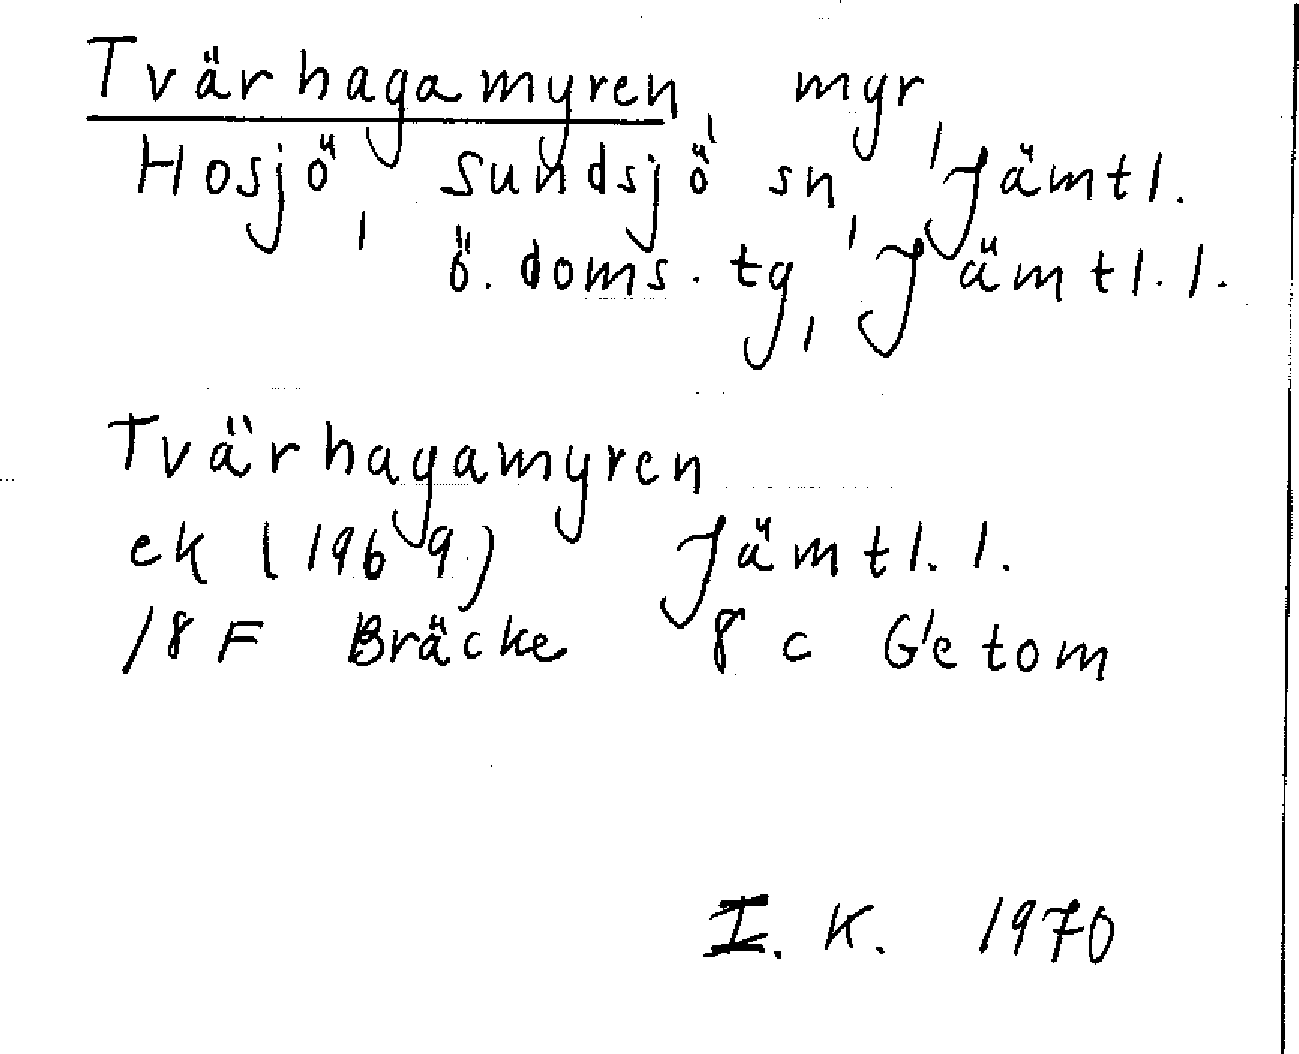 Tvärhagamyren, myr,
Hosjö, Sundsjö sn, Jämtl.
ö. doms. tg, Jämtl. l.
Tvärhagamyren
ek (1969) Jämtl. l.
18 F Bräcke 8 c Getom
I. K. 1970